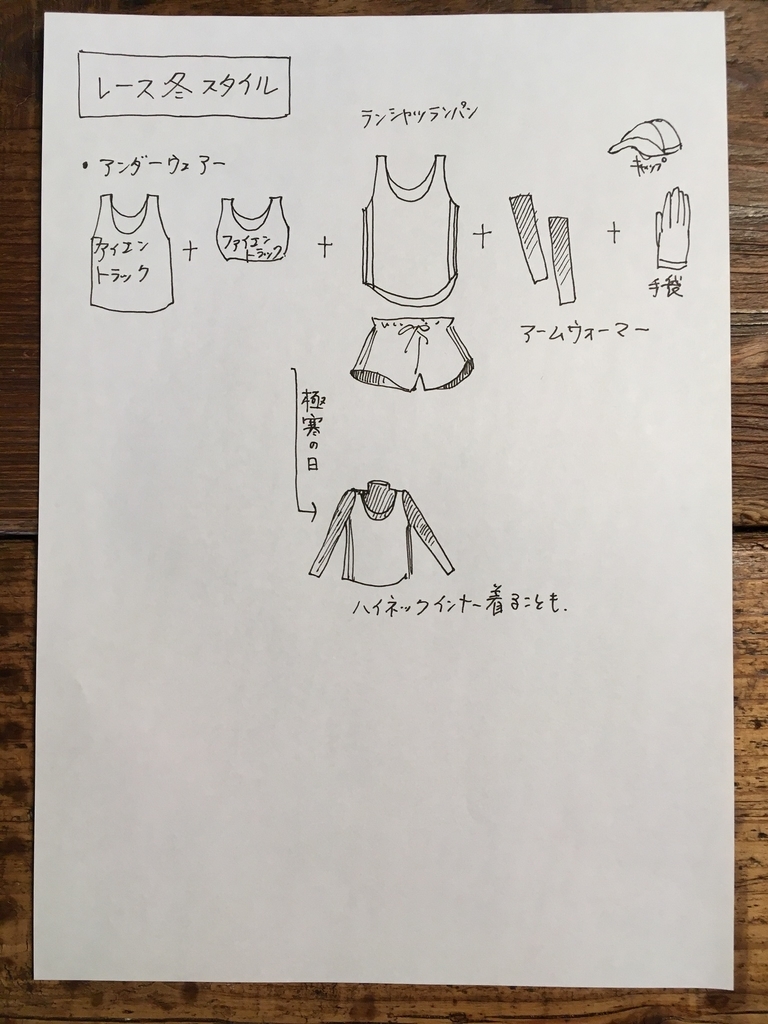 レース冬スタイル
ランシャツランパン
キャップ
・アンダーウェアー
ファイエン
トラック
+
ファイエン
トラック
+
+
+
手袋
アームウォーマー
極寒の日
ハイネックインナー着ることも.